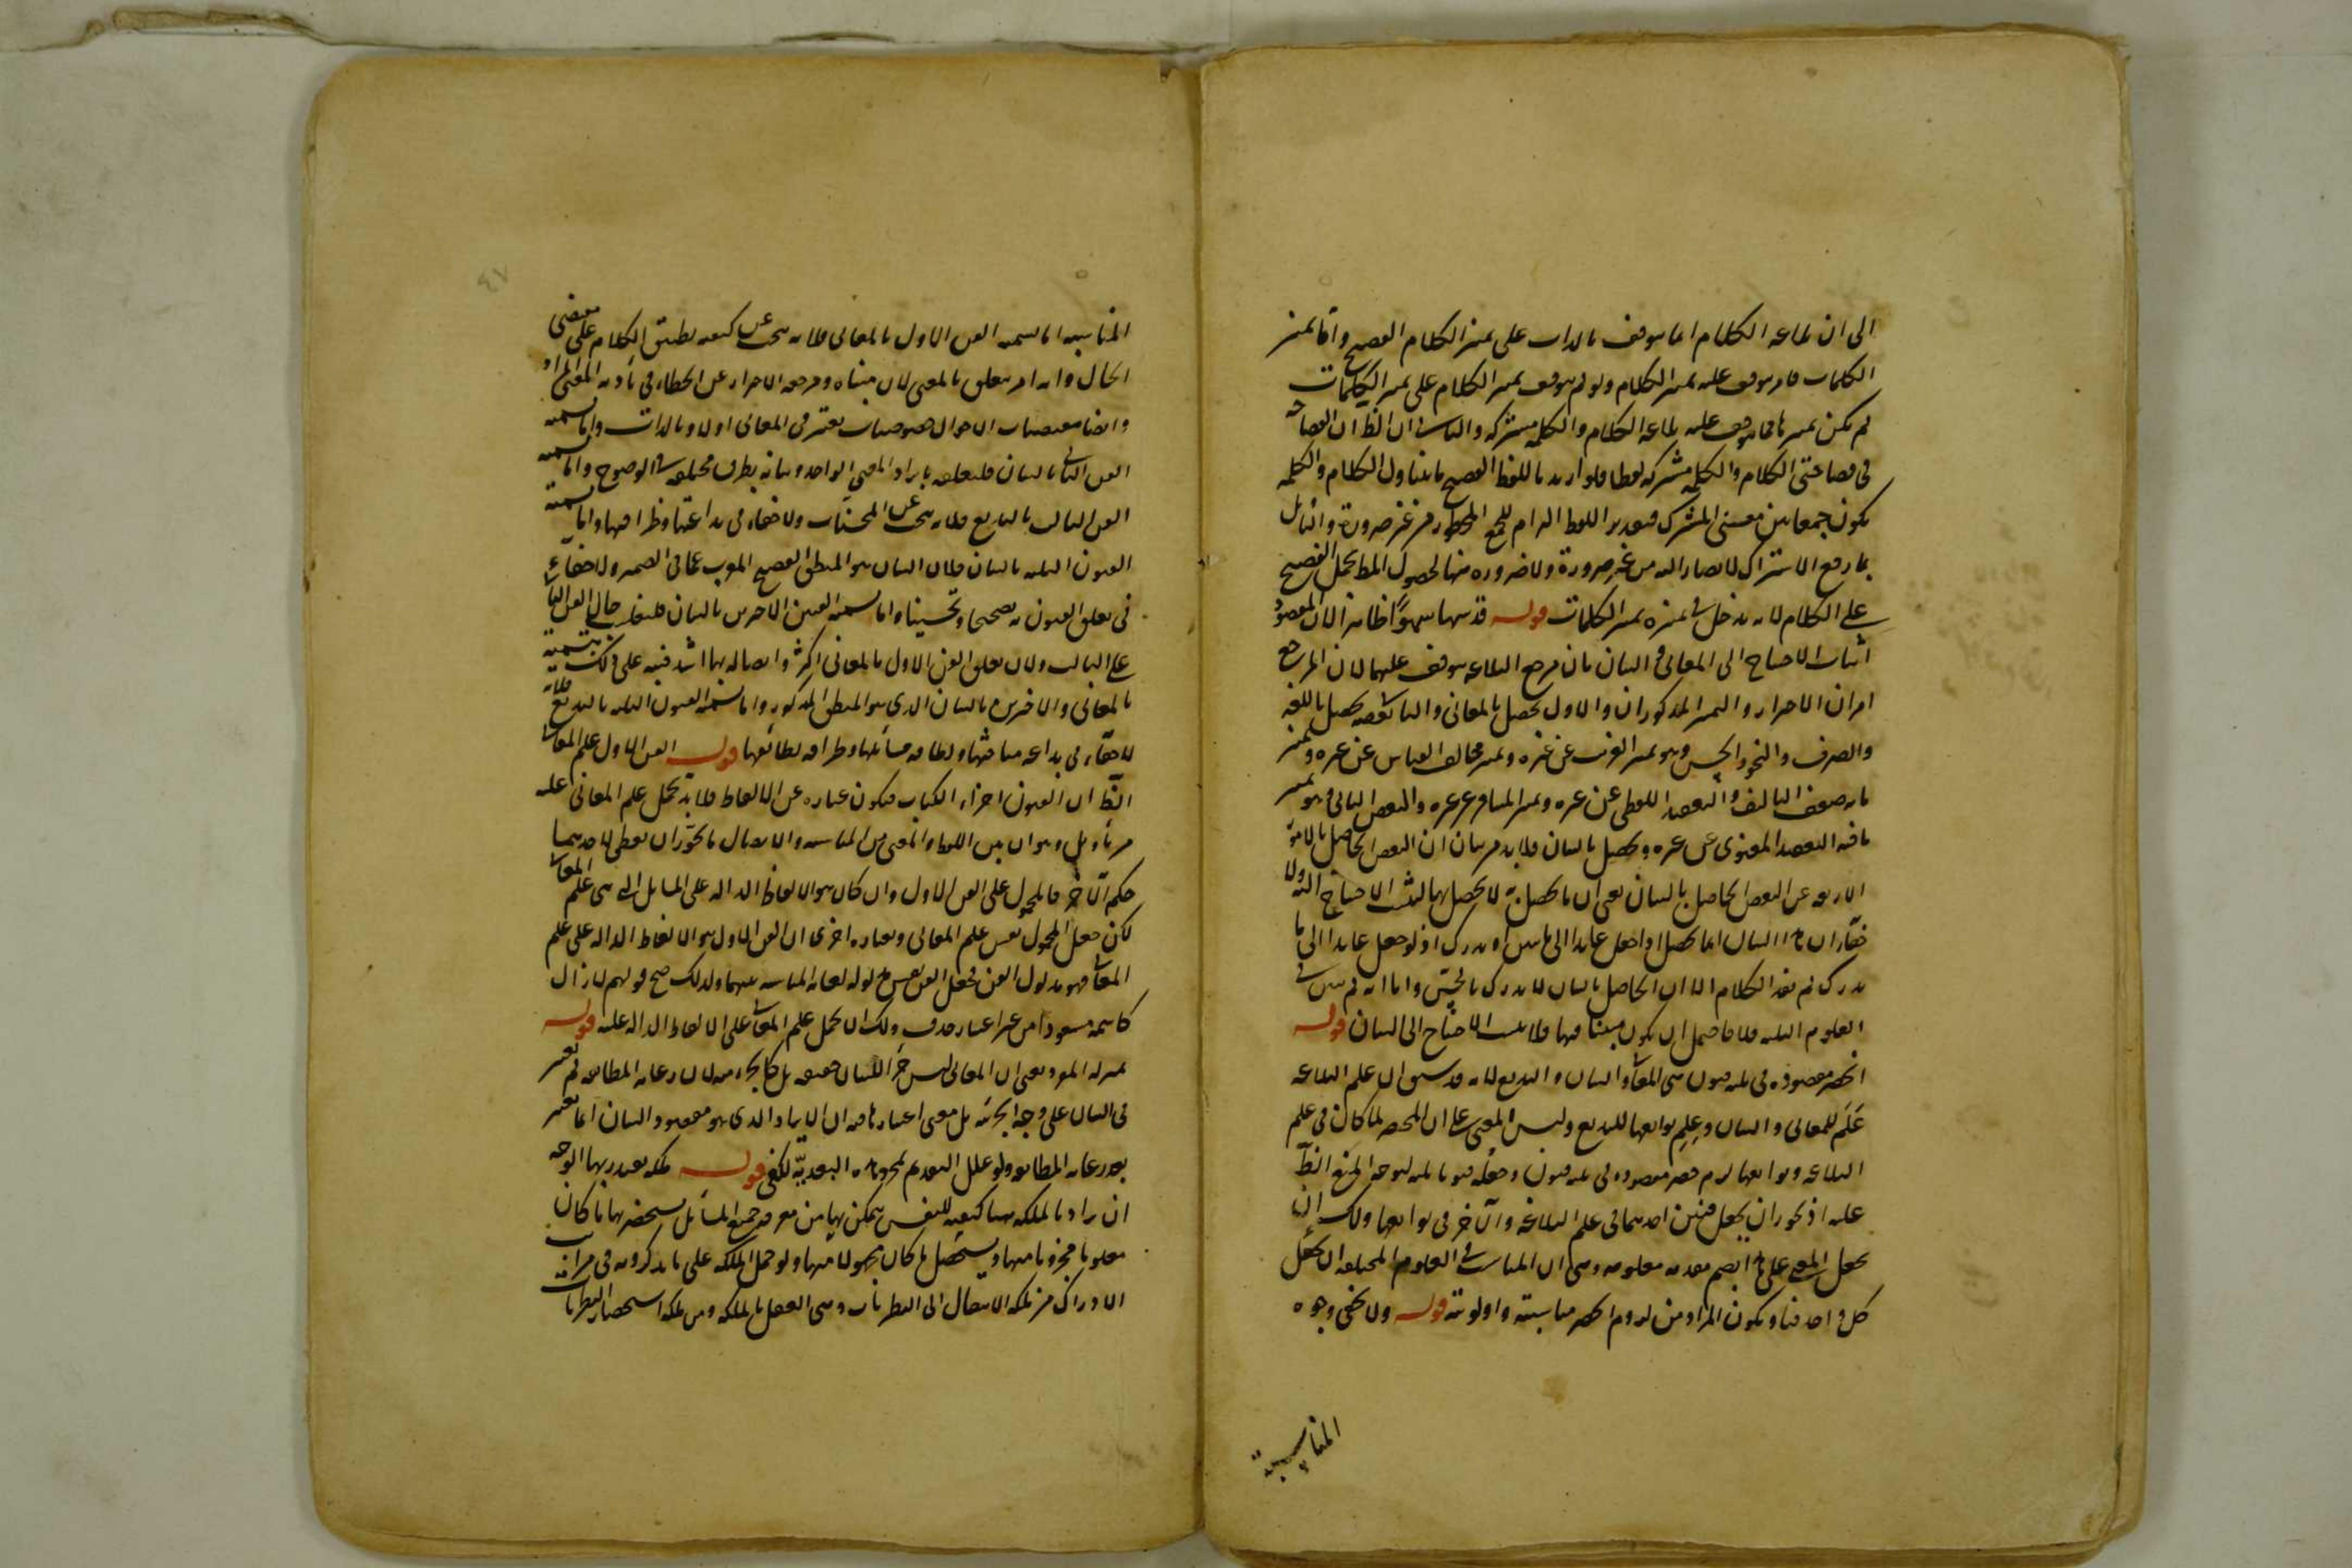 الى ان بلاغة الكلام انما يتوقف بالذات على تميز الكلام الفصيح واما تميز
الكلمات فامر يتوقف عليه تميز الكلام ولو لم يتوقف تميز الكلام على تميز الكلمات
لم يكن تميزها مما يتوقف عليه بلاغة الكلام والكلمة مشتركة والثاني ان الظ ان الفصاحة
في فصاحتي الكلام والكلمة مشتركة لفظا فلو اريد باللفظ الفصيح ما يتناول الكلام والكلمة
يكون جمعا بين معنيي المشترك فتقدير اللفظ التزام للجمع المحظور من غير ضرورة والقائل
الاشتراك لا يصار اليه من غير ضرورة ولا ضرورة منها لحصول المط بحمل الفصيح
على الكلام لانه يدخل في تميزه تميز الكلمات قوله قد سها سهوا ظاهرا لان المقصود
اثبات الاحتياج الى المعاني والبيان بان مرجع البلاغة يتوقف عليهما لان المرجع
امران الاحتراز والتميز المذكوران والاول يحصل بالمعاني والثاني بعضه يحصل باللغة
والصرف والنحو والحس وهو تميز الغريب عن غيره وتميز مخالف القياس عن غيره وتميز
ما فيه ضعف التاليف والتعقيد اللفظي عن غيره وتميز المتنافر عن غيره والبعض الباقي وهو تميز
ما فيه التعقيد المعنوي عن غيره ويحصل بالبيان فلا بد من بيان ان البعض الحاصل بالامور
الاربعة غير البعض الحاصل بالبيان يعني ان ما يحصل به لا يحصل بها ليثبت الاحتياج اليه ولا
يدرك لم يفد الكلام الا ان الحاصل بالبيان لا يدرك بالحس واما انه لم يبين في
العلوم الثلثة فلا فاحتمل ان يكون مبينا فيها فلا يثبت الاحتياج الى البيان قوله
انحصر مقصوده في ثلثة فنون هي المعاني والبيان والبديع لانه قد سبق ان علم البلاغة
علم للمعاني والبيان وعلم توابعها للبديع وليس المعنى على ان المختصر لما كان في علم
البلاغة وتوابعها لزم حصر مقصوده في ثلثة فنون وجعله فنونا ثلثة ليتوجه المنع الظ
عليه اذ يجوز ان يجعل فنين احدهما في علم البلاغة والآخر في توابعها ولك ان
تجعل المعنى على هذا بضم مقدمة معلومة وهي ان المناسب في العلوم المختلفة ان يجعل
كل واحد فنا ويكون المراد من لزوم الحصر مناسبته واولويته قوله ولا يخفى وجوه
المناسبة
المناسبة اما تسمية الفن الاول بالمعاني فلانه يبحث عن كيفية تطبيق الكلام على مقتضى
الحال وانه امر يتعلق بالمعنى لان مبناه ومرجعه الاحتراز عن الخطاء في تادية المعنى المراد
وايضا مقتضيات الاحوال خصوصيات تعتبر في المعاني اولا وبالذات واما تسمية
الفن الثاني بالبيان فلتعلقه بايراد المعنى الواحد وبيانه بطرق مختلفة في الوضوح واما تسمية
الفن الثالث بالبديع فلانه يبحث عن المحسنات ولا خفاء في بداعتها وظرافتها واما تسمية
الفنون الثلثة بالبيان فلان البيان هو المنطق الفصيح المعرب عما في الضمير ولا خفاء
في تعلق الفنون به تصحيحا وتحسينا واما تسمية الفنين الاخيرين بالبيان فلتغليب حال الفن الثاني
على الثالث ولان تعلق الفن الاول بالمعاني اكثر واتصاله بها اشد فنبه على ذلك بتسميته
بالمعاني والاخيرين بالبيان الذي هو المنطق المذكور واما تسمية الفنون الثلثة بالبديع فلانه
لا خفاء في بداعة مباحثها ولطافة مسائلها وظرافة لطائفها قوله الفن الاول علم المعاني
الظ ان الفنون اجزاء الكتاب فتكون عبارة عن الالفاظ فلا بد لحمل علم المعاني عليه
من تاويل وهو ان بين اللفظ والمعنى من المناسبة والاتصال ما يجوز ان يعطى لاحدهما
حكم الآخر فالمحمول على الفن الاول وان كان هو الالفاظ الدالة على المسائل التي هي علم المعاني
لكن جعل المحمول نفس علم المعاني وبعبارة اخرى ان الفن الاول هو الالفاظ الدالة على علم
المعاني فهو مدلول الفن فجعل الفن نفس مدلوله لغاية المناسبة بينهما ولذلك صح قولهم
من غير اعتبار حذف ولك ان تحمل علم المعاني على الالفاظ الدالة عليه قوله
بمنزلة المفرد يعني ان المعاني ليس جزأ للبيان حقيقة بل كالجزء منه لان رعاية المطابقة لم تعتبر
في البيان على وجه الجزئية بل معنى اعتبارها فيه ان الايراد الذي هو مقصود البيان انما يعتبر
بعد رعاية المطابقة ولو علل التقديم بمجرد هذه البعدية لكفى قوله ملكة يقتدر بها الوجه
ان يراد بالملكة هيئة كيفية للنفس يتمكن بها من معرفة جميع المسائل يستحضر بها ما كان
معلوما مخزونا منها ويستحصل ما كان مجهولا منها ولو حمل الملكة على ما يذكرونه في مراتب
الادراك من ملكة الانتقال الى النظريات وهي العقل بالملكة ومن ملكة استحضار النظريات